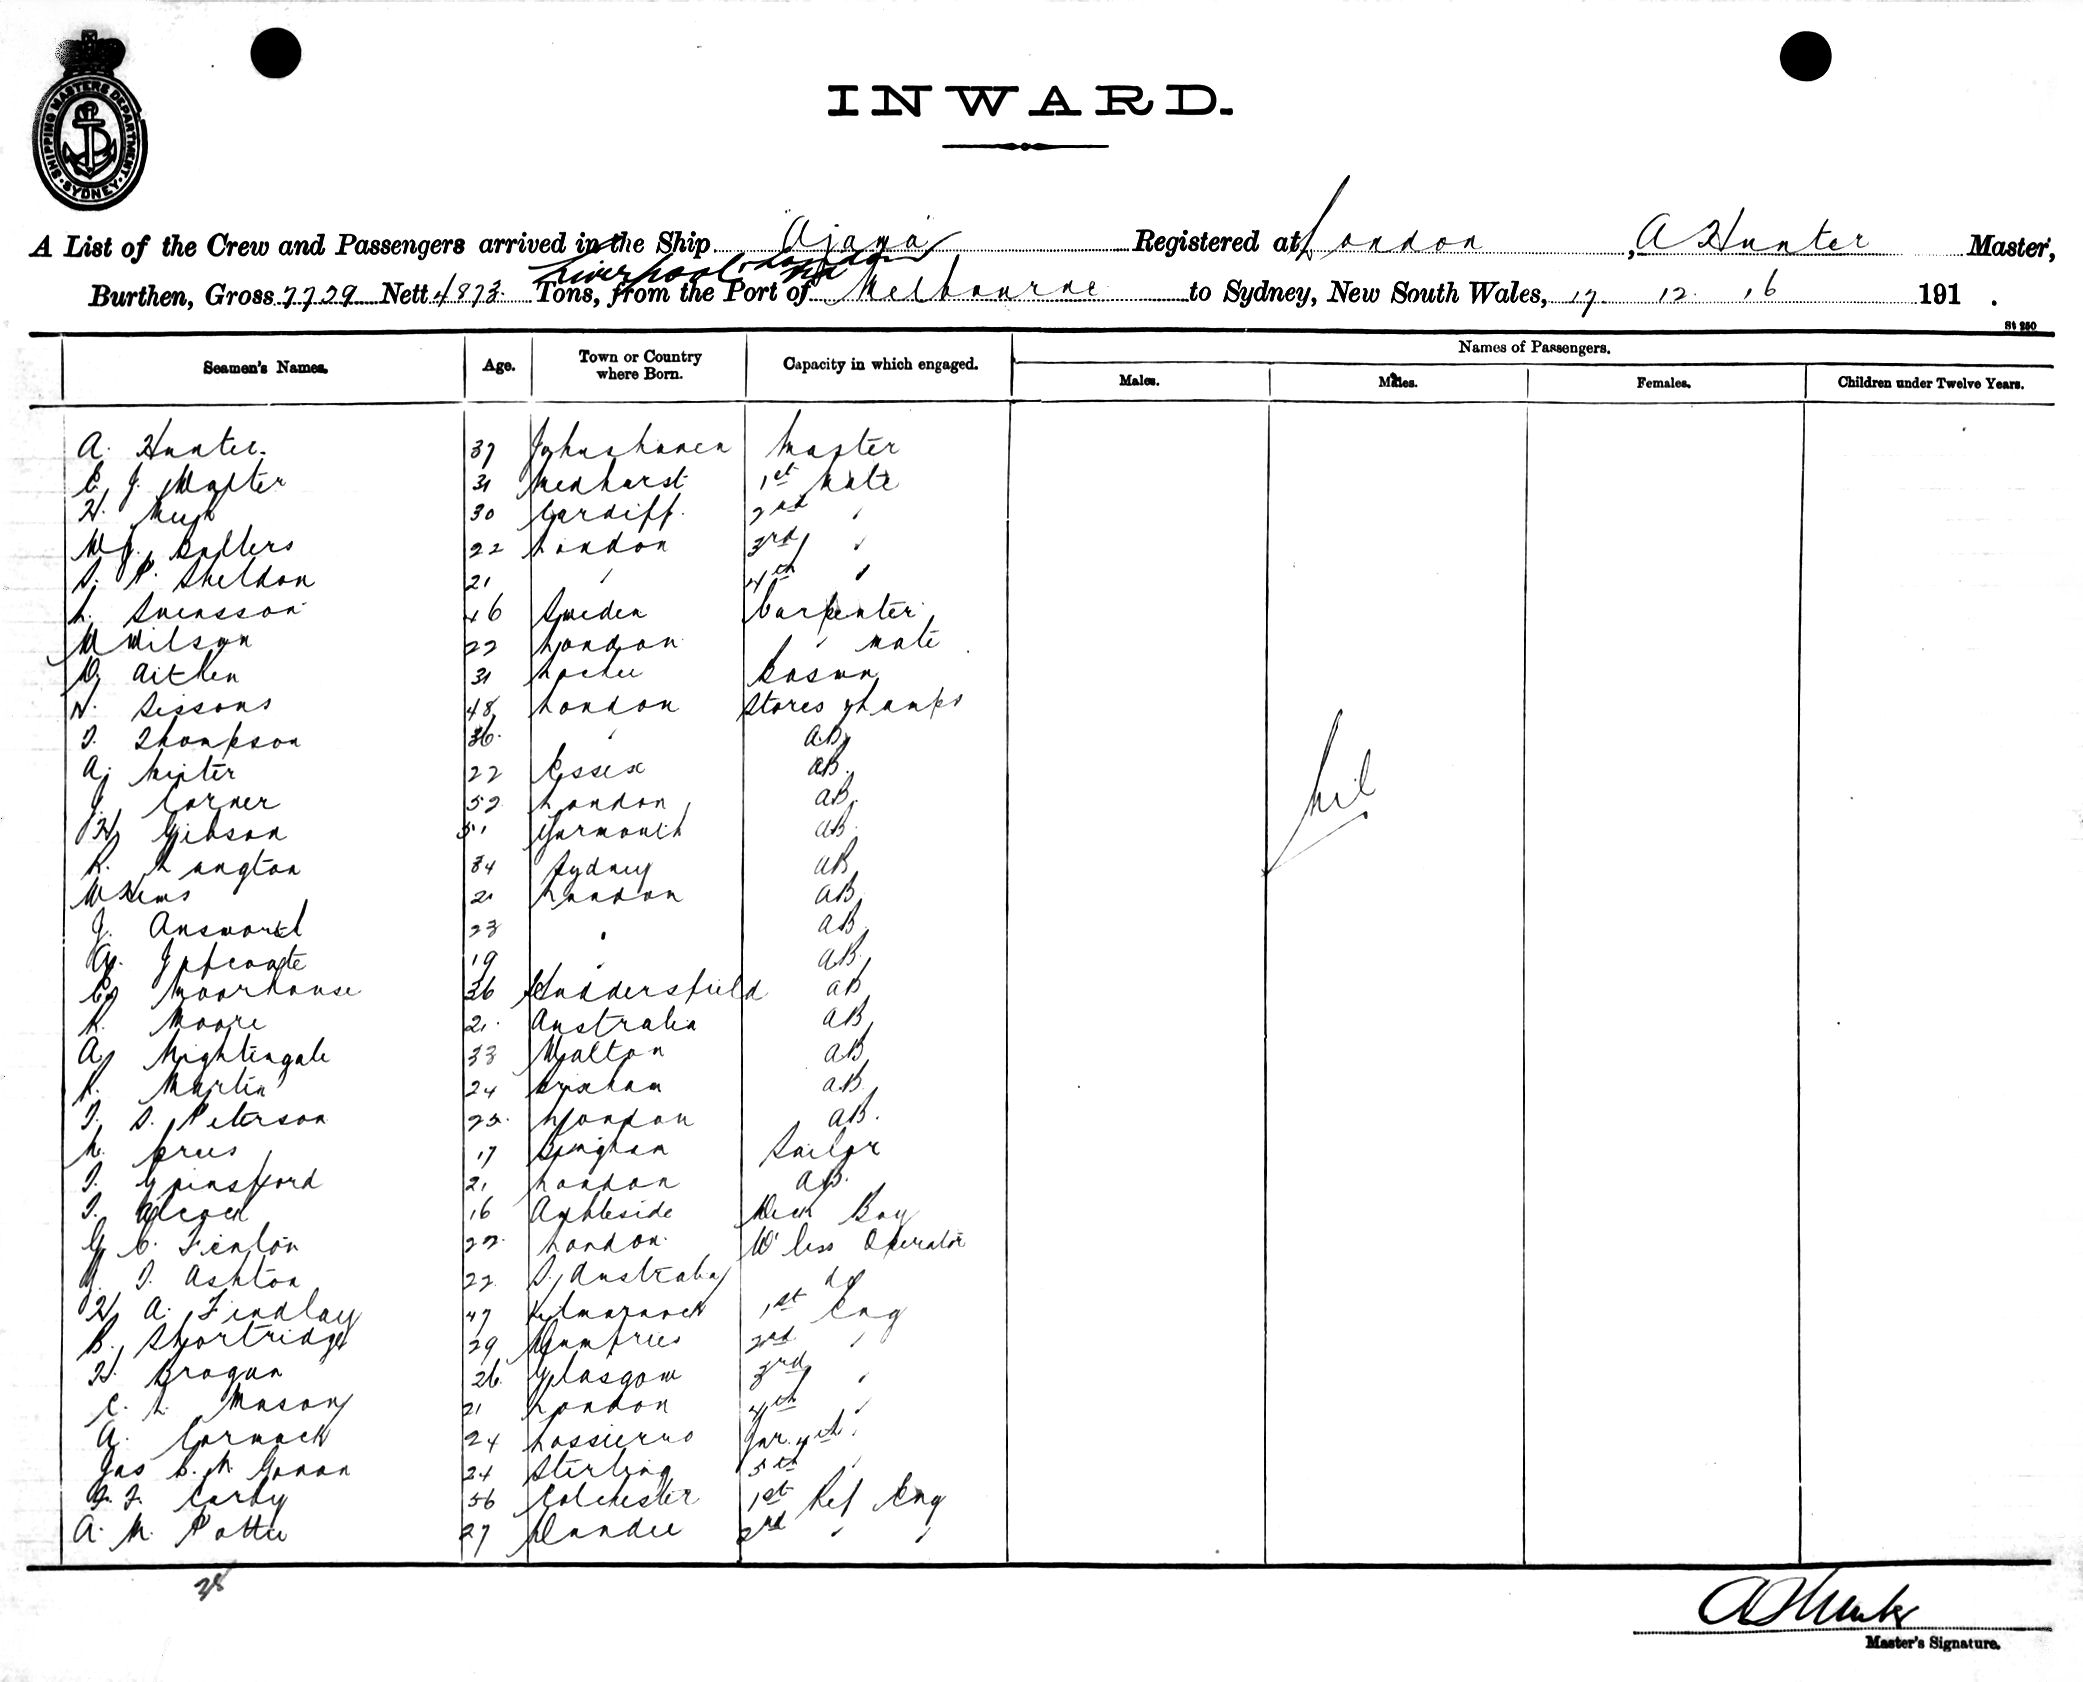 SHIPPING MASTERS DEPARTMENT SYDNEY
INWARD.
A List of the Crew and Passengers arrived in the Ship "Ajana" Registered at London, A Hunter Master,
Liverpool London and
Burthen, Gross 7729 Nett 4873 Tons, from the Port of Melbourne to Sydney, New South Wales, 17 12 16 191 .
St 250
Seamen's Names. Age. Town or Country where Born. Capacity in which engaged. Names of Passengers.
Males. Males. Females. Children under Twelve Years.
A. Hunter. 37 Johnshaven Master
E. J. Walter 31 Medhurst 1st Mate
H. 30 Cardiff. 2nd "
W J. Sadlers 22 London 3rd "
S. P. Sheldon 21 " 4th "
L. Svensson 46 Sweden Carpenter
W Wilson 22 London " mate
D. Aitken 31 Lochee Bosun
N. Sissons 48 London Stores & Lamps
T. Thompson 36 " AB
A. Minter 22 Essex AB.
J. Corner 52 London AB.
H. Gibson 51 Yarmouth AB.
R. Langton 34 Sydney AB
W Hems 21 London AB
J. 23 " AB
A. 19 " AB
C. Moorhouse 36 Huddersfield AB
R. Moore 21 Australia AB
A. Nightingale 33 Walton AB
R. Martin 24 Brixham AB
T. S. Peterson 25 London AB.
17 Sailor
T. Gainsford 21 London AB.
T. Alcock 16 Ambleside Deck Boy
G C. Fenton 22 London W'less Operator
T. Ashton 22 S. Australia do
H A. Findlay 47 Kilmarnock 1st Eng
B. Shortridge 29 Dumfries 2nd "
H. Brogan 26 Glasgow 3rd "
C. L. Mason 21 London 4th "
A. Cormack 24 Jnr. 4th "
Jas C. M. Gowan 24 Sterling 5th "
F. Corby 56 Colchester 1st Ref Eng
A. M. Pattie 27 Dundee 2nd " "
Nil
A Hunter
Master's Signature.